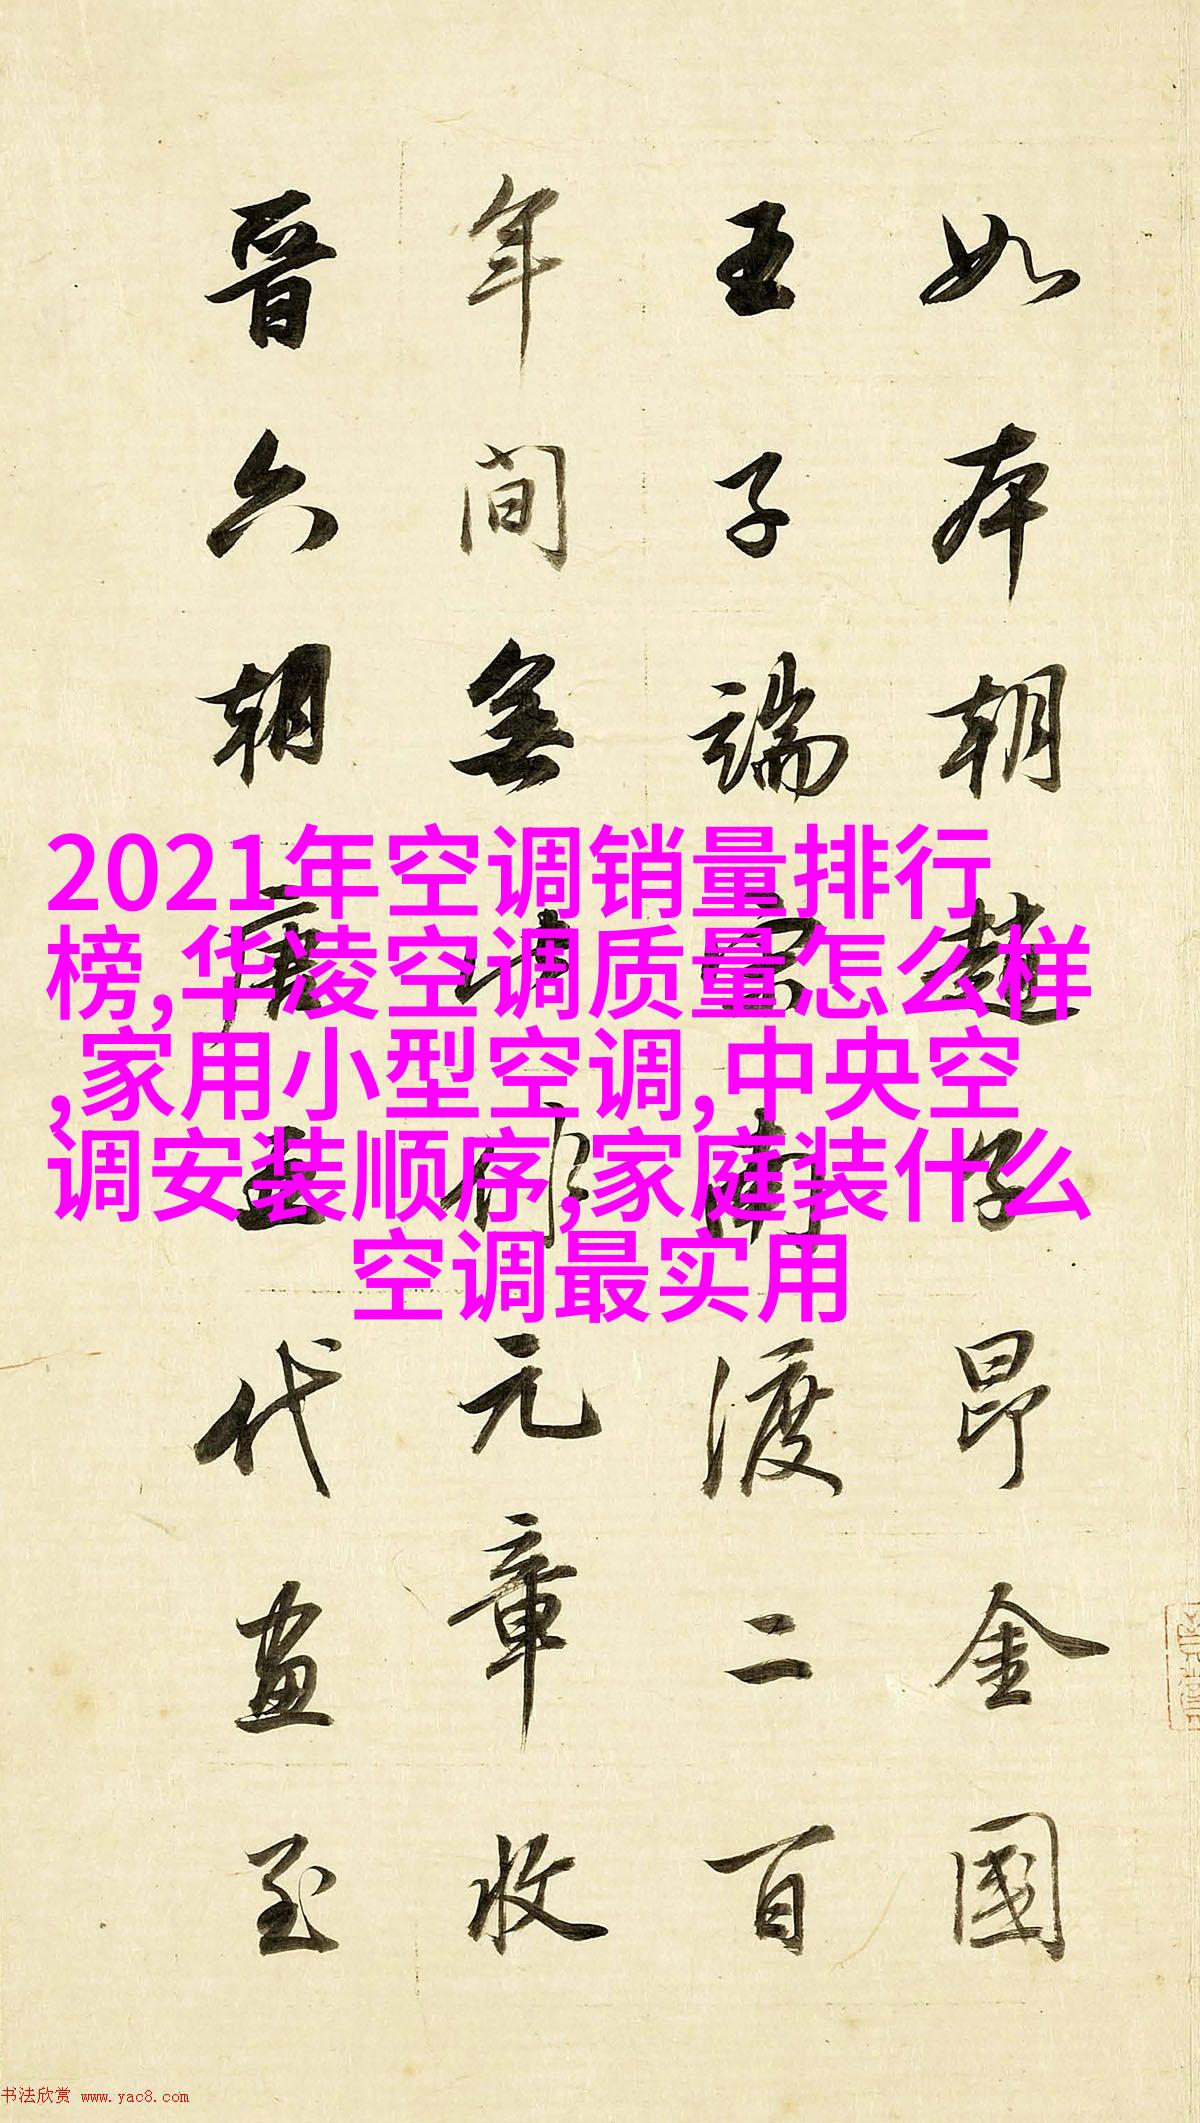 2021年空调销量排行
榜,华凌空调质量怎么样
,家用小型空调,中央空
调安装顺序,家庭装什么
空调最实用
如本朝趙子昂金國
王子端宋南渡二百
年間無此作元章收
晉六朝唐五代畫至
书法欣赏 www.yac8.com